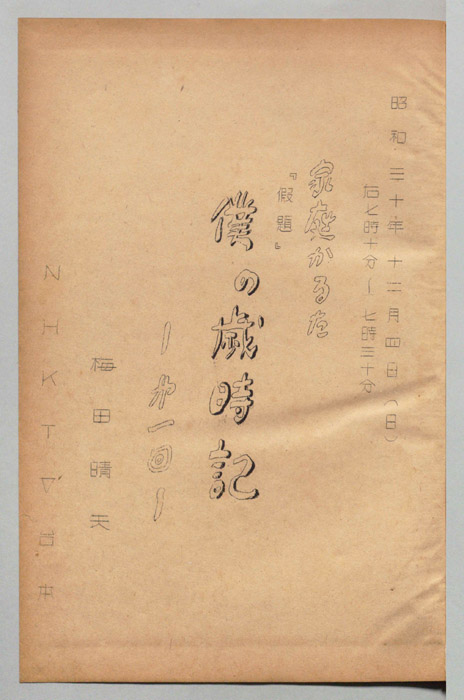 昭和三十年十二月四日(日)
后七時十分―七時三十分
家庭かるた
『假題』
僕の歳時記
―第一回―
梅田晴夫
NHKTV台本